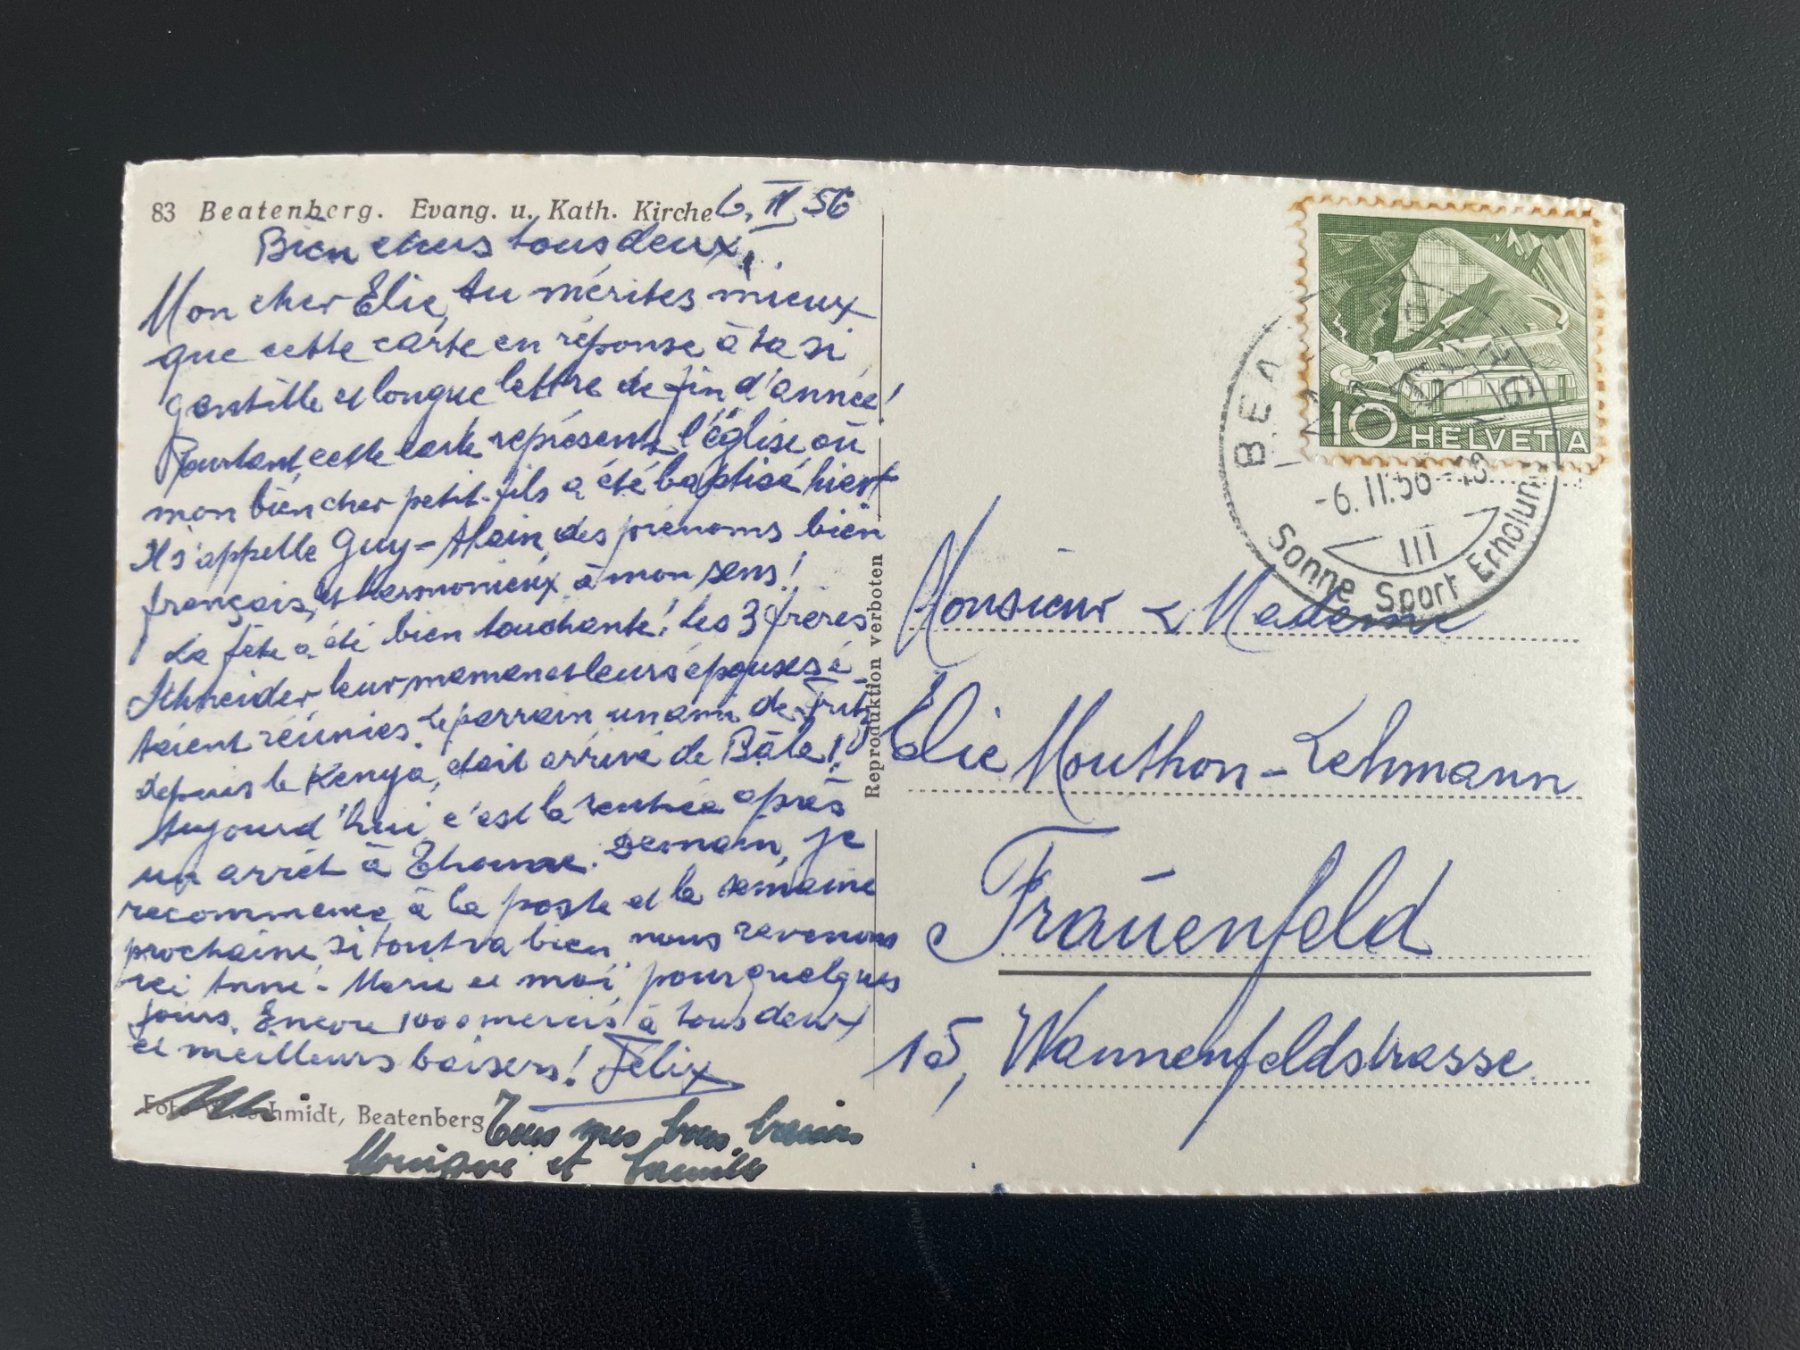 83 Beatenberg. Evang. u. Kath. Kirche
6. II 56
Bien chers tous deux,
Mon cher Elie, tu mérites mieux
que cette carte en réponse à ta si
gentille et longue lettre de fin d'année!
Pourtant cette carte représente l'église où
mon bien cher petit-fils a été baptisé hier!
Il s'appelle Guy-Alain, des prénoms bien
français, et harmonieux à mon sens!
La fête a été bien touchante! Les 3 frères
Schneider, leur maman et leurs épouses é-
taient réunies. Le parrain un ami de Fritz
depuis le Kenya, était arrivé de Bâle!
Aujourd'hui, c'est la rentrée après
un arrêt à Thoune. Demain, je
recommence à la poste et la semaine
prochaine si tout va bien, nous revenons
ici Marie et moi, pour quelques
jours. Encore 1000 mercis à tous deux
et meilleurs baisers! Félix
Foto Schmidt, Beatenberg
Tous mes bons baisers
Monique et famille
Reproduktion verboten
10 HELVETIA
BEA
-6.II.56-
III
Sonne Sport Erholun
Monsieur & Madame
Elie Mouthon-Lehmann
Frauenfeld
15, Wannenfeldstrasse